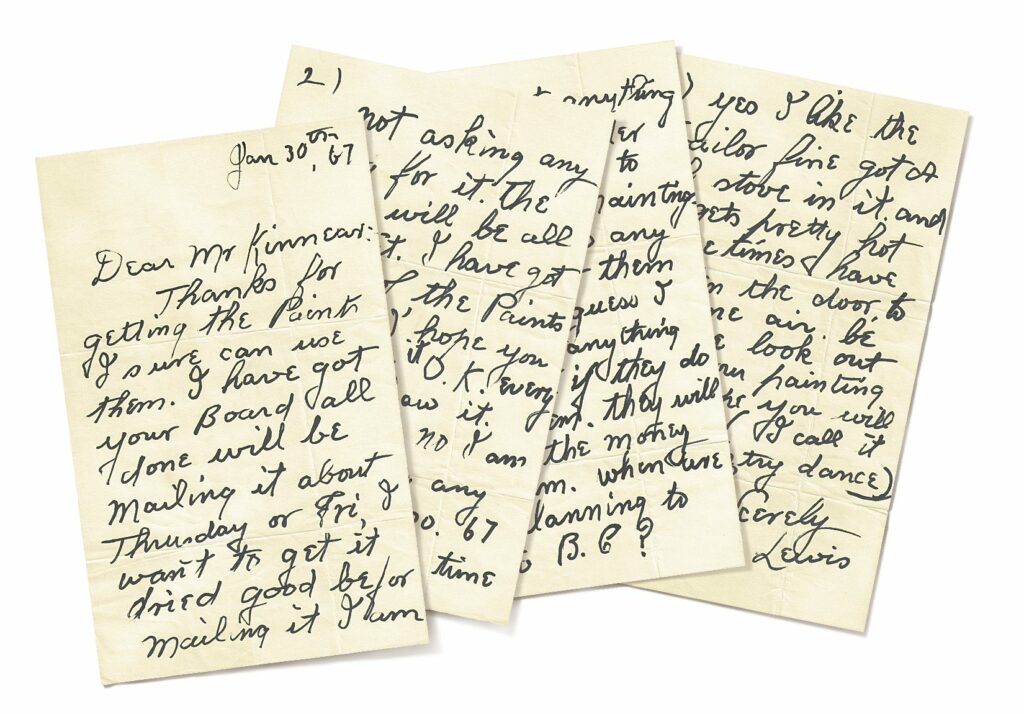 Jan 30th, 67
Dear Mr Kinnear:
Thanks for
getting the Paint
I sure can use
them. I have got
your Board all
done will be
Mailing it about
Thursday or Fri, I
want to get it
dried good befor
Mailing it I am
2)
not asking any
for it. the
will be all
I have got
the Paints
hope you
it O.K. every
it.
no I am
any
67
time
anything
to
any
them
guess I
anything
if they do
they will
the money
when are
lanning to
B. C ?
yes I like the
ailor fine got a
stove in it. and
gets pretty hot
times I have
in the door, to
air. be
look out
painting
you will
I call it
try dance)
cerely
Lewis